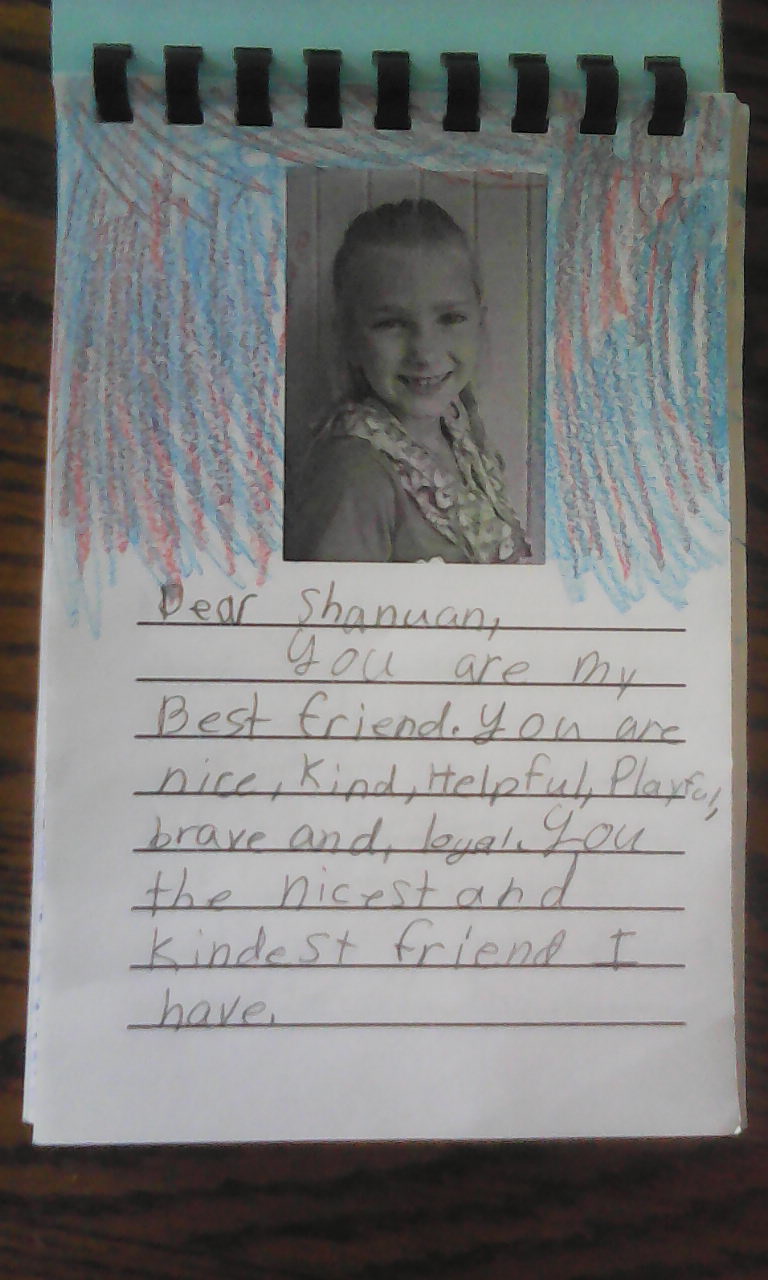 Dear Shanuan,
You are my
Best friend. You are
nice, Kind, Helpful, Playful,
brave and, loyal. You
the nicest and
kindest friend I
have.